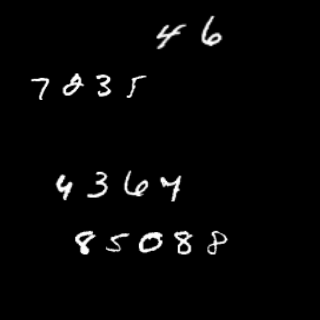 46
7835
4364
85088